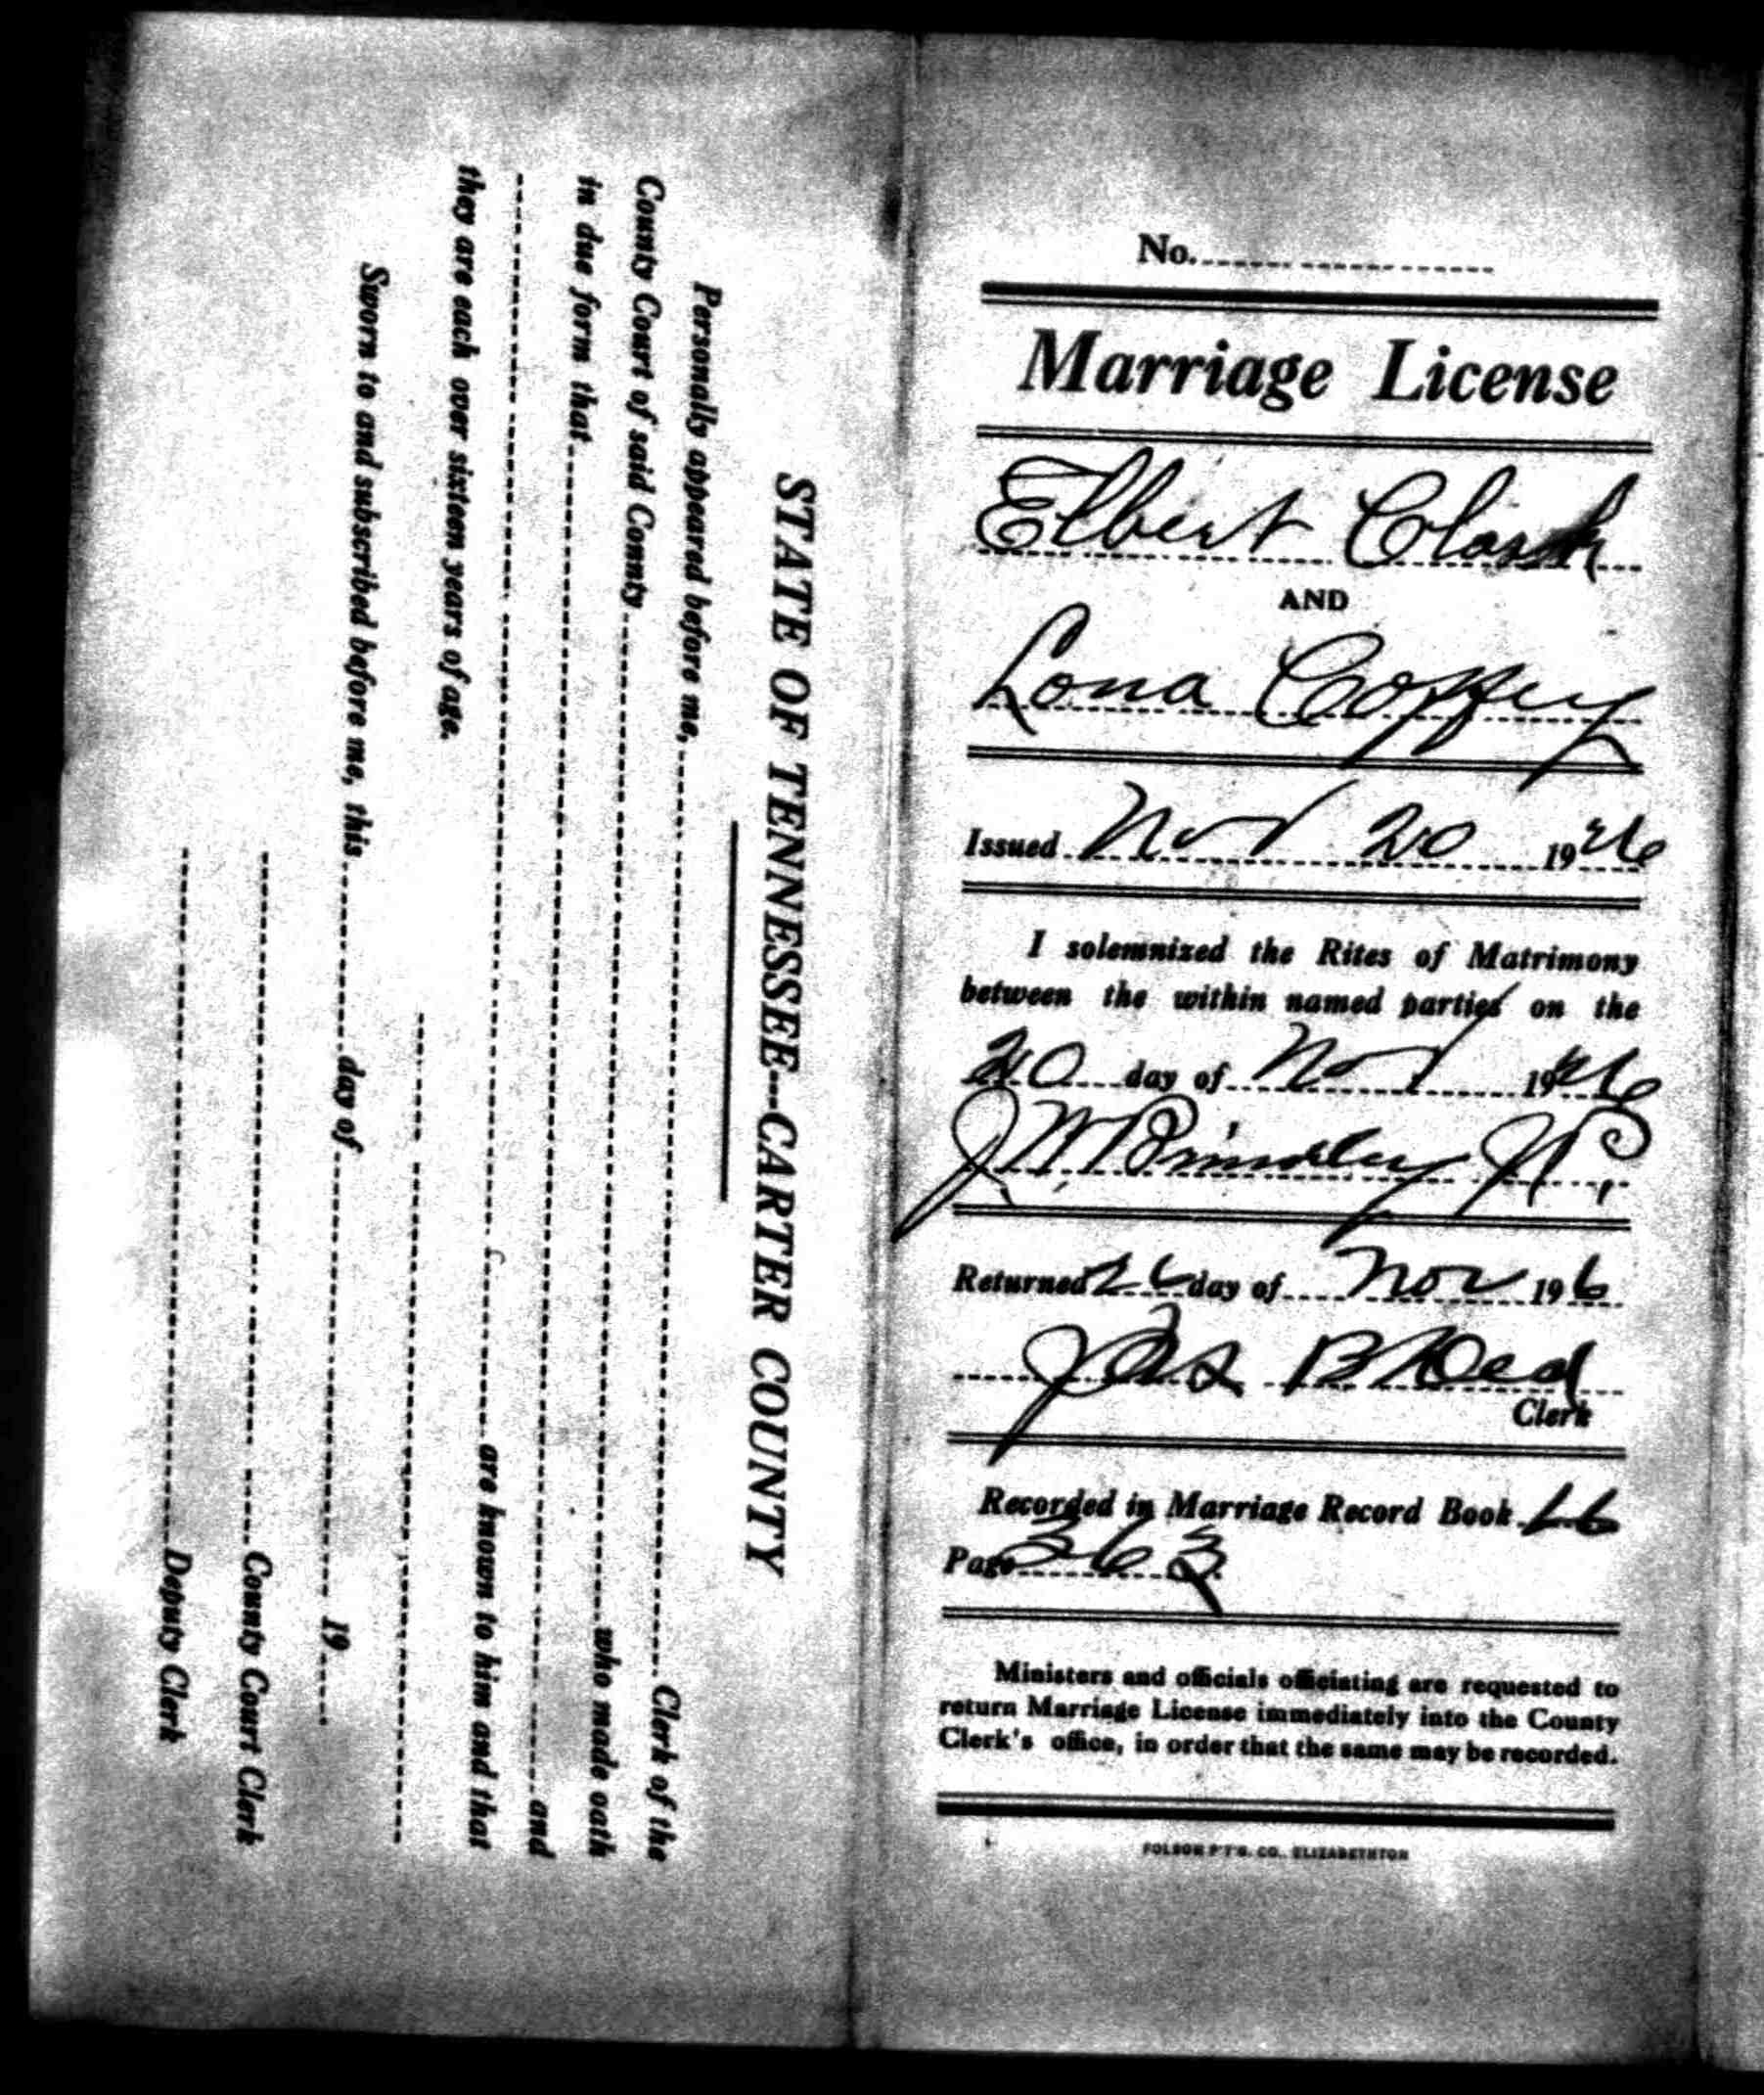 STATE OF TENNESSEE--CARTER COUNTY
Personally appeared before me, Clerk of the
County Court of said County who made oath
in due form that and
are known to him and that
they are each over sixteen years of age.
Sworn to and subscribed before me, this day of 19
County Court Clerk
Deputy Clerk
No.
Marriage License
Elbert Clark
AND
Lona Coffey
Issued Nov 20 1926
I solemnized the Rites of Matrimony
between the within named parties on the
20 day of Nov 1926
J.
Returned 26 day of Nov 19 6
Jas B
Clerk
Recorded in Marriage Record Book
Page 363
Ministers and officials officiating are requested to
return Marriage License immediately into the County
Clerk's office, in order that the same may be recorded.
FOLSOM P'T'G. CO., ELIZABETHTON